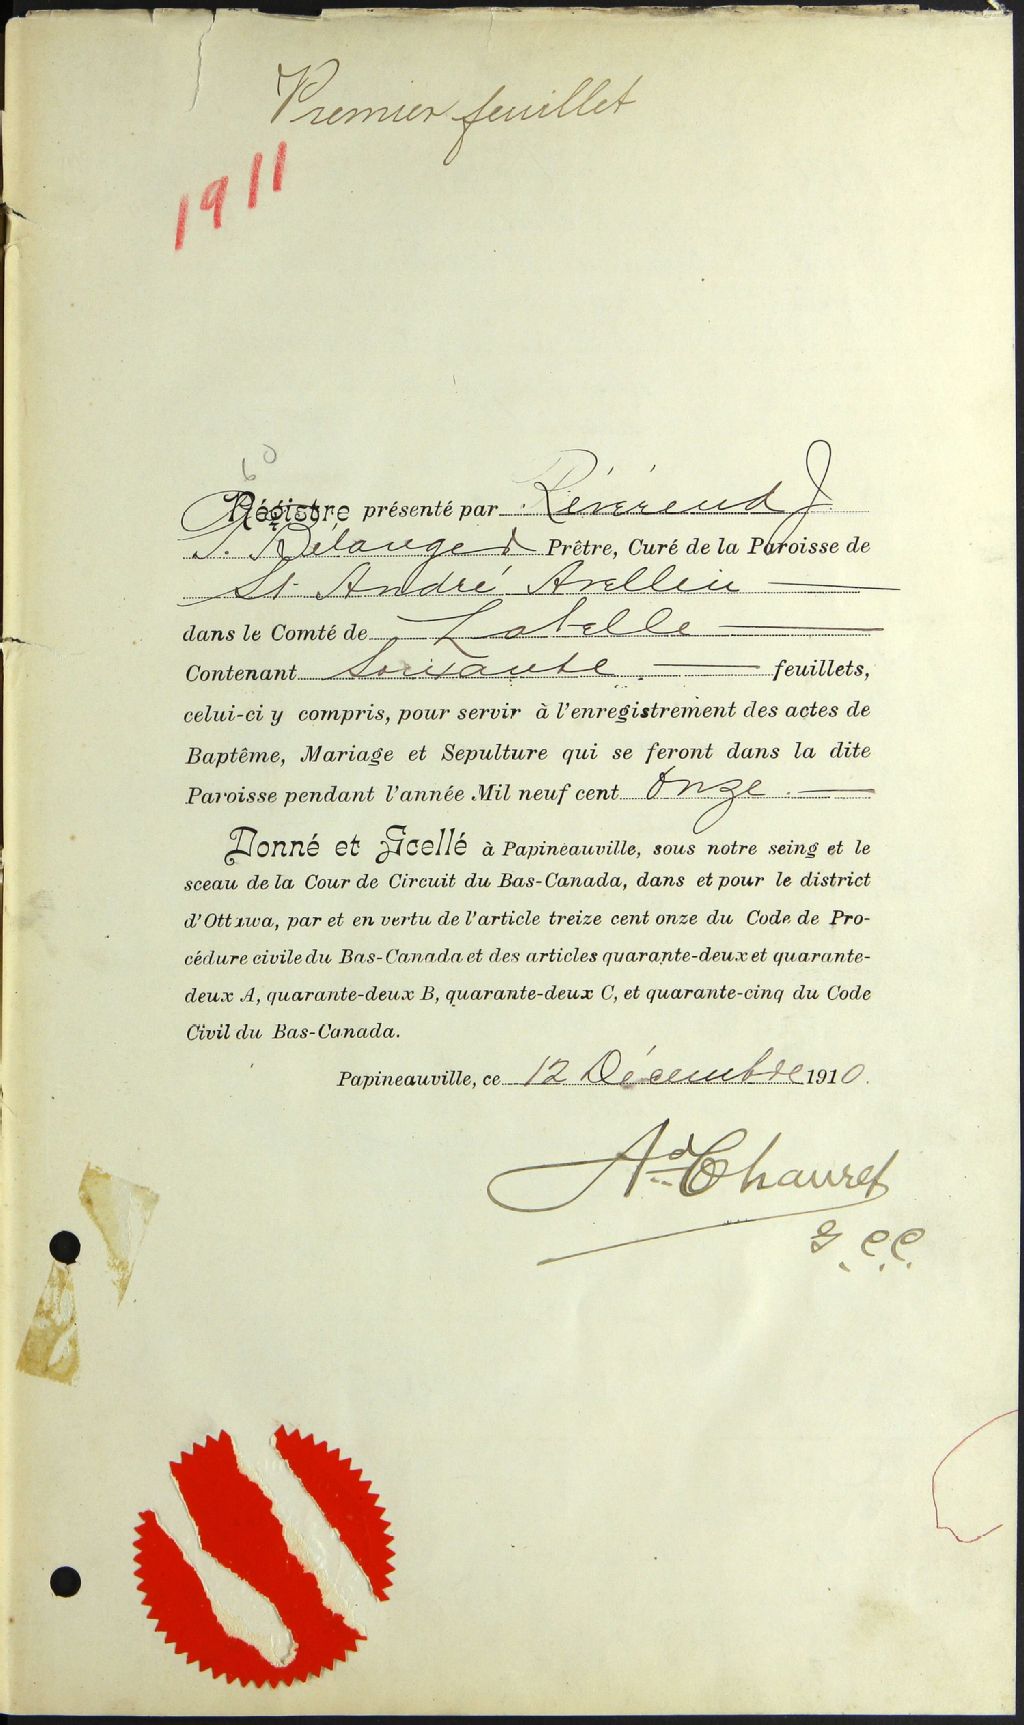 Premier feuillet
1911
60
Régistre présenté par Révérend J.
Bélanger Prêtre, Curé de la Paroisse de
St André Avellin
dans le Comté de Labelle
Contenant Soixante feuillets,
celui-ci y compris, pour servir à l'enregistrement des actes de
Baptême, Mariage et Sepulture qui se feront dans la dite
Paroisse pendant l'année Mil neuf cent Onze.
Donné et Scellé à Papineauville, sous notre seing et le
sceau de la Cour de Circuit du Bas-Canada, dans et pour le district
d'Ottawa, par et en vertu de l'article treize cent onze du Code de Pro-
cédure civile du Bas-Canada et des articles quarante-deux et quarante-
deux A, quarante-deux B, quarante-deux C, et quarante-cinq du Code
Civil du Bas-Canada.
Papineauville, ce 12 Décembre 1910.
Ad Chauret
G.C.C.